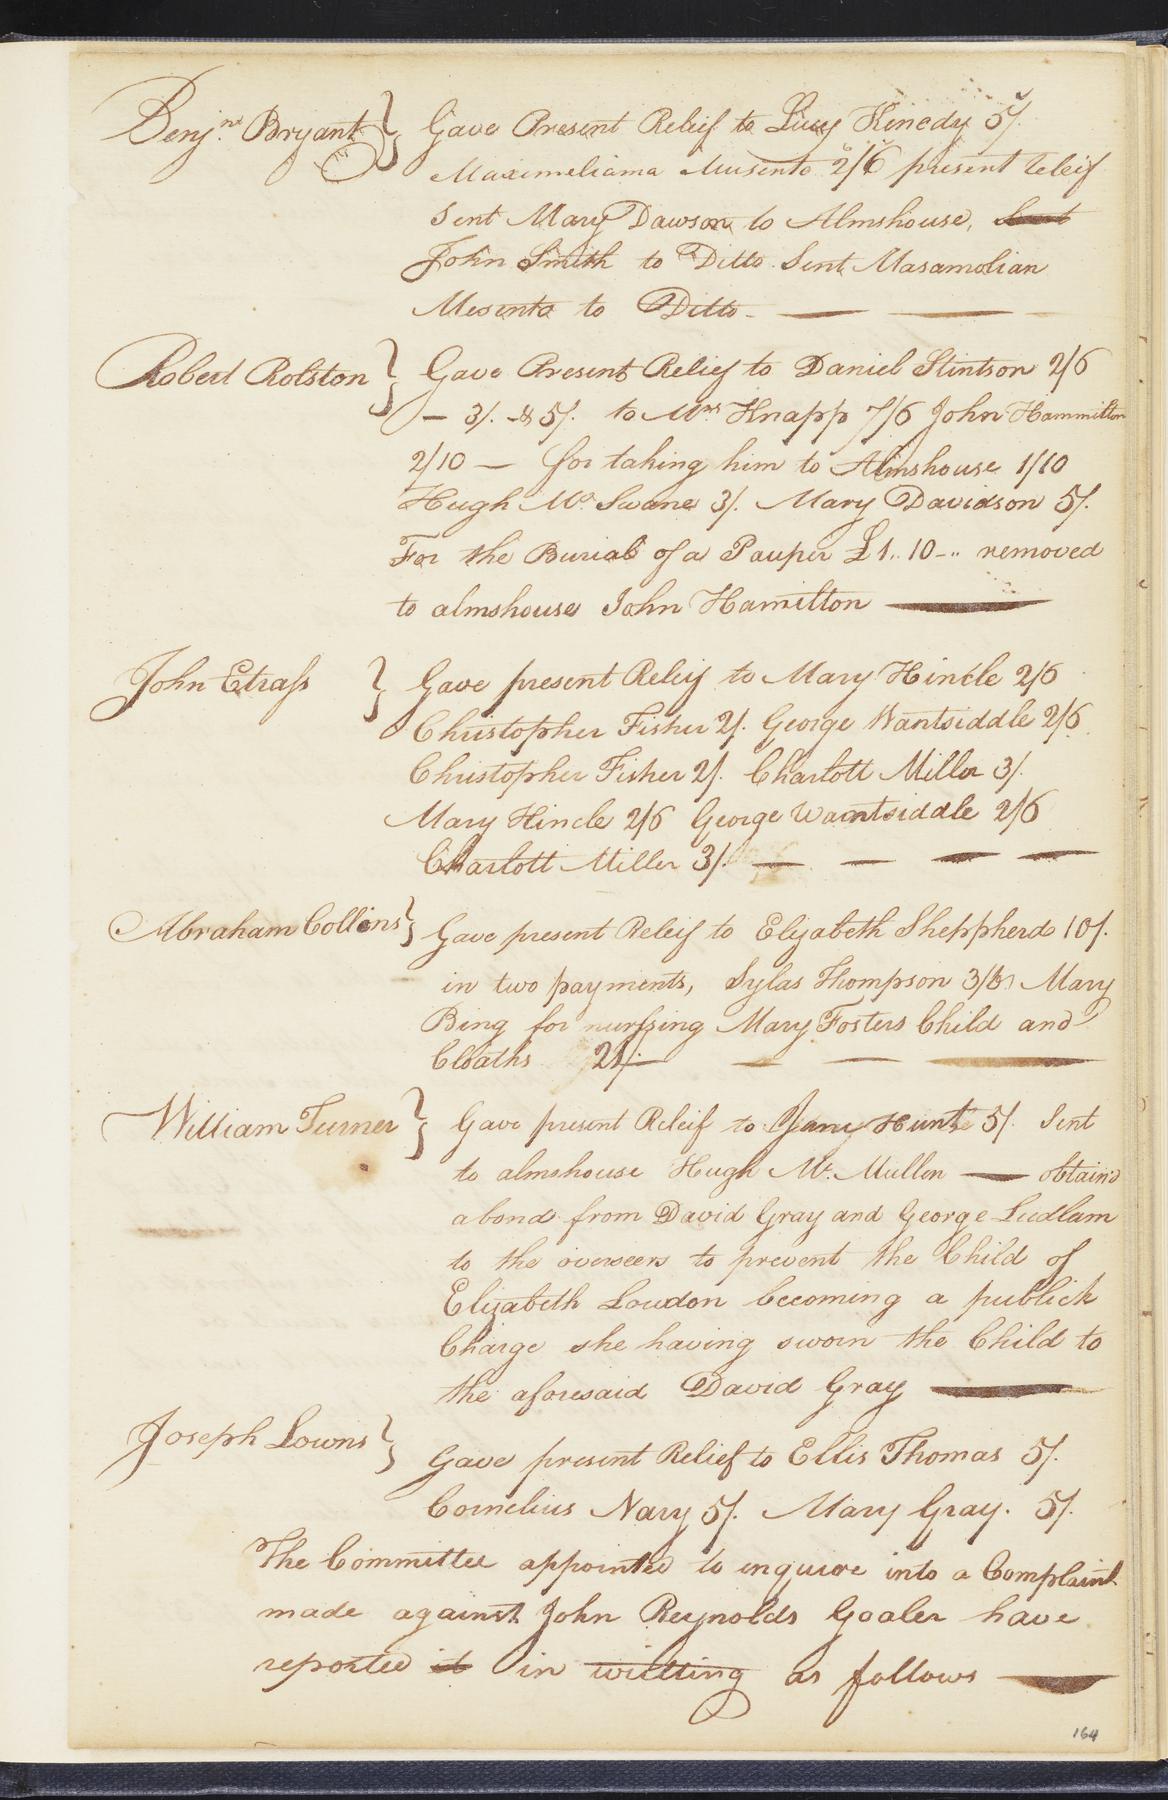 Benjn. Bryant } Gave Present Releif to Lucy Kinedy 5/.
Maximeliama Musento 2/6 present releif
Sent Mary Dawson to Almshouse, Sent
John Smith to Ditto Sent Masamolian
Mesento to Ditto —
Robert Rolston } Gave Present Relief to Daniel Stintson 2/6
— 3/. & 5/. to Mrs Knapp 7/6 John Hammilton
2/10 — for taking him to Almshouse 1/10
Hugh Mc. Swane 3/. Mary Davidson 5/.
For the Burial of a Pauper £1..10-.. removed
to almshouse John Hamilton —
John Etrass } Gave present Releif to Mary Hincle 2/6
Christopher Fisher 2/. George Wantsiddle 2/6
Christopher Fisher 2/. Charlott Miller 3/.
Mary Hincle 2/6 George Wantsiddle 2/6
Charlott Miller 3/. —
Abraham Collins } Gave present Releif to Elizabeth Sheppherd 10/.
in two payments, Sylas Thompson 3/ Mary
Bing for nursing Mary Fosters Child and
Cloaths 21/—
William Turner } Gave present Releif to Jane Hunt 5/. Sent
to almshouse Hugh Mc. Mullen — obtain'd
a bond from David Gray and George Ludlam
to the overseers to prevent the Child of
Elizabeth Loudon becoming a publick
Charge she having sworn the Child to
the aforesaid David Gray —
Joseph Lowns } Gave present Relief to Ellis Thomas 5/.
Cornelius Nary 5/. Mary Gray. 5/.
The Committee appointed to inquire into a Complaint
made against John Reynolds Goaler have
reported it in writting as follows —
164